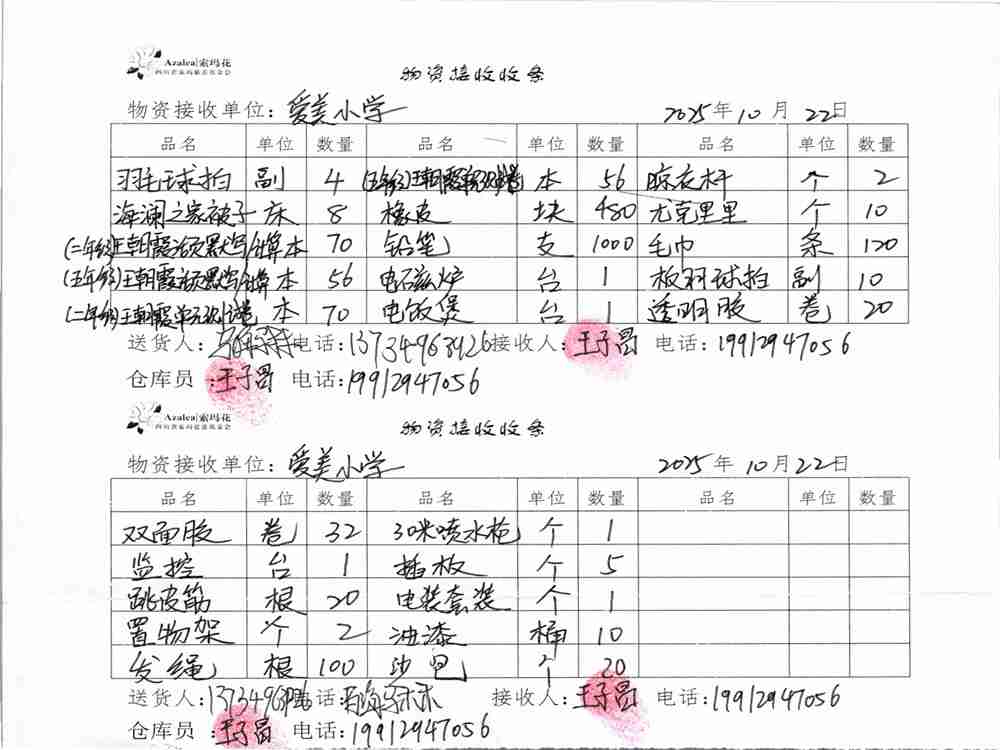 Azalea|索玛花
四川省索玛慈善基金会
物资接收收条
物资接收单位：爱美小学 2025年10月22日
品名 单位 数量 品名 单位 数量 品名 单位 数量
羽毛球拍 副 4 (五年级)王朝霞单元测试卷 本 56 晾衣杆 个 2
海澜之家被子 床 8 橡皮 块 480 尤克里里 个 10
(二年级)王朝霞默写/计算本 70 铅笔 支 1000 毛巾 条 120
(五年级)王朝霞默写/计算 本 56 电磁炉 台 1 板羽球拍 副 10
(二年级)王朝霞单元测试卷 本 70 电饭煲 台 1 透明胶 卷 20
送货人： 电话：13734963426 接收人：王子昌 电话：19912947056
仓库员：王子昌 电话：19912947056
Azalea|索玛花
四川省索玛慈善基金会
物资接收收条
物资接收单位：爱美小学 2025年10月22日
品名 单位 数量 品名 单位 数量 品名 单位 数量
双面胶 卷 32 30米喷水枪 个 1
监控 台 1 插板 个 5
跳皮筋 根 20 电装套装 个 1
置物架 个 2 油漆 桶 10
发绳 根 100 沙包 个 20
送货人： 电话： 接收人：王子昌 电话：19912947056
仓库员：王子昌 电话：19912947056